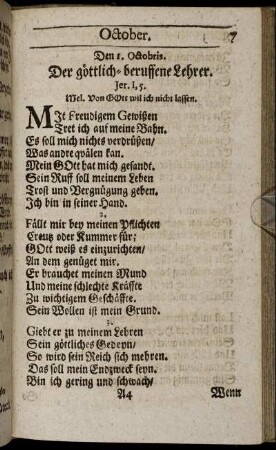 October. 7
Den 1. Octobris.
Der göttlich-beruffene Lehrer.
Jer. I, 5.
Mel. Von GOtt wil ich nicht lassen.
MIt Freudigem Gewißen
Tret ich auf meine Bahn.
Es soll mich nichts verdrüßen/
Was andre qvälen kan.
Mein GOtt hat mich gesandt.
Sein Ruff soll meinem Leben
Trost und Vergnügung geben.
Ich bin in seiner Hand.
2.
Fällt mir bey meinen Pflichten
Creutz oder Kummer für;
GOtt weiß es einzurichten/
An dem genüget mir.
Er brauchet meinen Mund
Und meine schlechte Kräffte
Zu wichtigem Geschäffte.
Sein Wollen ist mein Grund.
3.
Giebt er zu meinem Lehren
Sein göttliches Gedeyn/
So wird sein Reich sich mehren.
Das soll mein Endzweck seyn.
Bin ich gering und schwach/
A4 Wenn